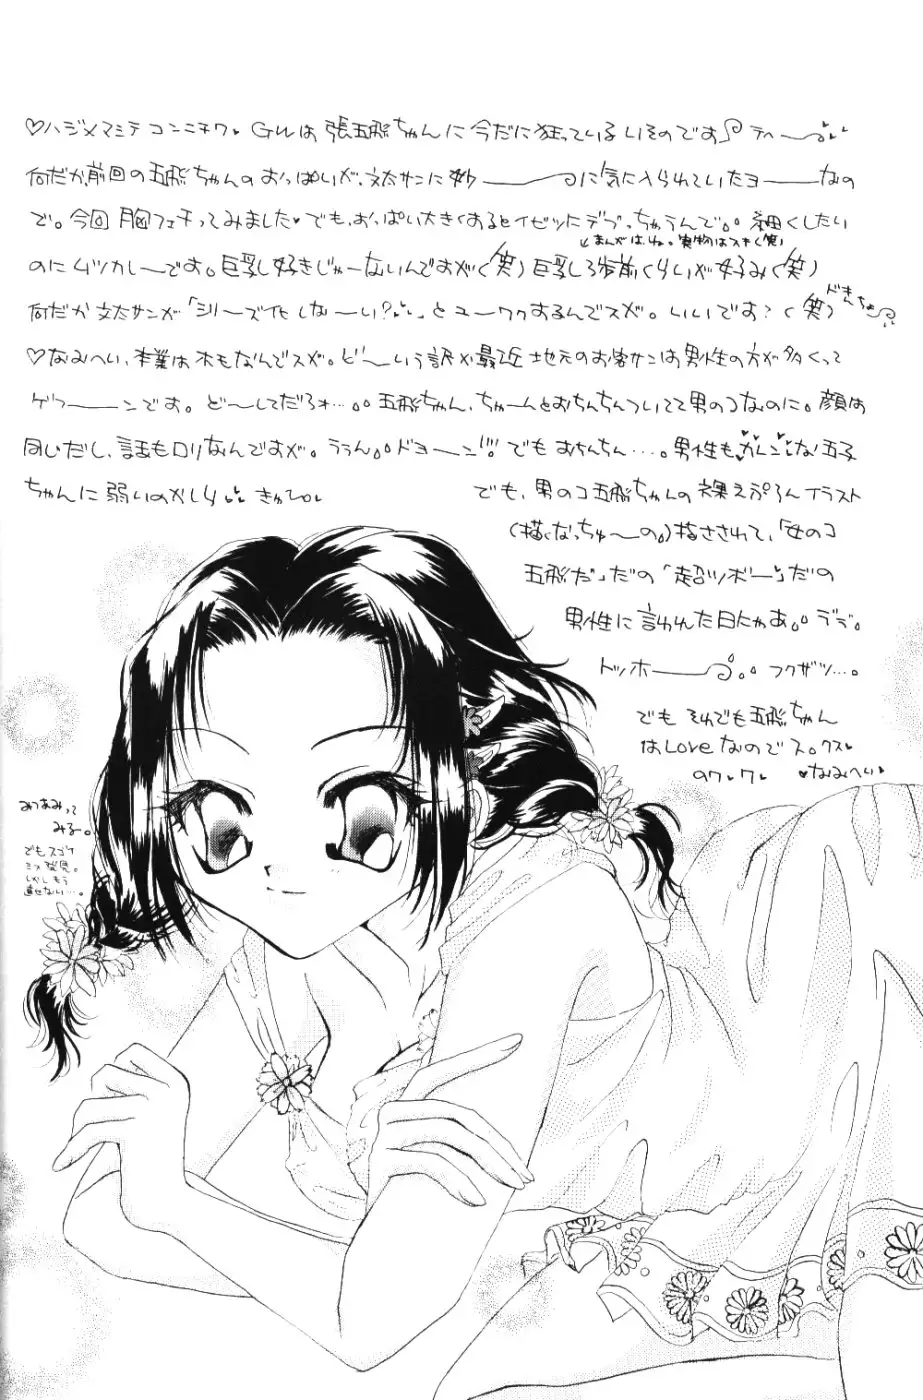 ♡ハジメマシテ コンニチワ♥ GWは 張五飛ちゃんに今だに狂っている いそのです テヘー
何だか前回の五飛ちゃんのおっぱいが、文太サンに妙ーーに気に入られていたヨーなの
で。今回 胸フェチってみました♥でも、おっぱい大きくするとイゼットにデブっちゃうんで。。細くしたい
↙まんがはね。実物はスキ(笑)
のにムツカしーです。巨乳し好きじゃーないんですが(笑)巨乳しろ歩前くらいが好み(笑)
何だか文太サンが「シリーズ化しなーい?♥」とユーワクするんでスが。いいです?(笑)ドキんちょ
♡なみへい、本業は木もなんでスが。どーいう訳か最近 地元のお客サンは男性の方が多くって
ゲローーンです。どーしてだろォ…。。五飛ちゃん、ちゃーんとおちんちんついてて男のコなのに。顔は
同じだし、話もロリなんですが。ううん。。ドヨーン!!! でも おちんちん…。男性も♥カレンな♥五子
ちゃんに弱いのかしら♥ きゅぴ。
でも、男のコ五飛ちゃんの裸えぷろんイラスト
(描くなっちゅ〜の。)描さされて、「女のコ
五飛だ」だの「超ツボー」だの
男性に言われた日にゃあ。。デデ。
トッホーー。。フクザツ…。
でも それでも五飛ちゃん
はLoveなのでス。クス♥
のワ♥ワ ♥なみへい♥
みつあみって
みるー。
でもスゴイ
ミス発見。
しかしもう
直せない…。